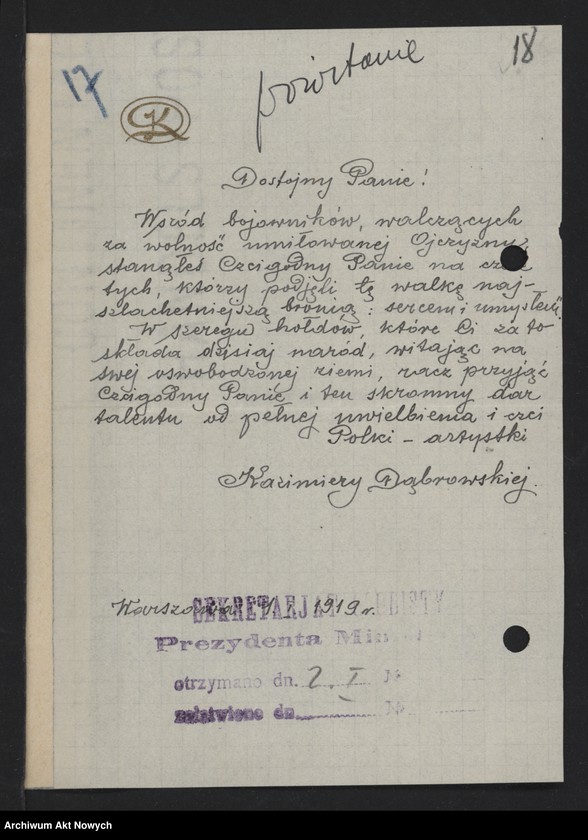 17
18
powitanie
K
Dostojny Panie!
Wśród bojowników, walczących
za wolność umiłowanej Ojczyzny,
stanąłeś Czcigodny Panie na
tych, którzy podjęli tę walkę naj-
szlachetniejszą bronią: sercem i umysłem".
W szeregu hołdów, które Ci za to
składa dzisiaj naród, witając na
swej oswobodzonej ziemi, racz przyjąć
Czcigodny Panie i ten skromny dar
talentu od pełnej uwielbienia i czci
Polki – artystki
Kazimiery Dąbrowskiej.
Warszawa 1919 r.
SEKRETARJAT
Prezydenta
otrzymano dn. 2. I №
załatwiono dn. №
Archiwum Akt Nowych